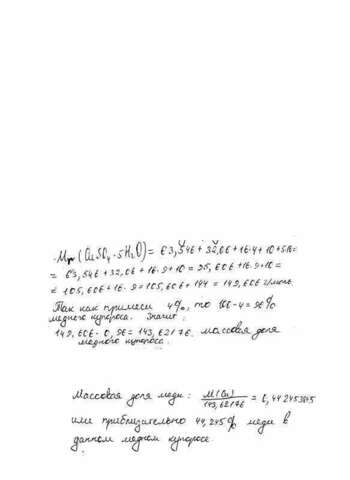 Mр(CuSO₄·5H₂O) = 63,546 + 32,06 + 16·4 + 10 + 5·16 =
= 63,546 + 32,06 + 16·9 + 10 = 95,606 + 16·9 + 10 =
= 105,606 + 16·9 = 105,606 + 144 = 149,606 г/моль.
Так как примеси 4%, то 100-4=96%
медного купороса. Значит:
149,606·0,96 = 143,62176. массовая доля
медного купороса.
Массовая доля меди: M(Cu)/143,62176 = 0,442453845
или приблизительно 44,245% меди в
данном медном купоросе.